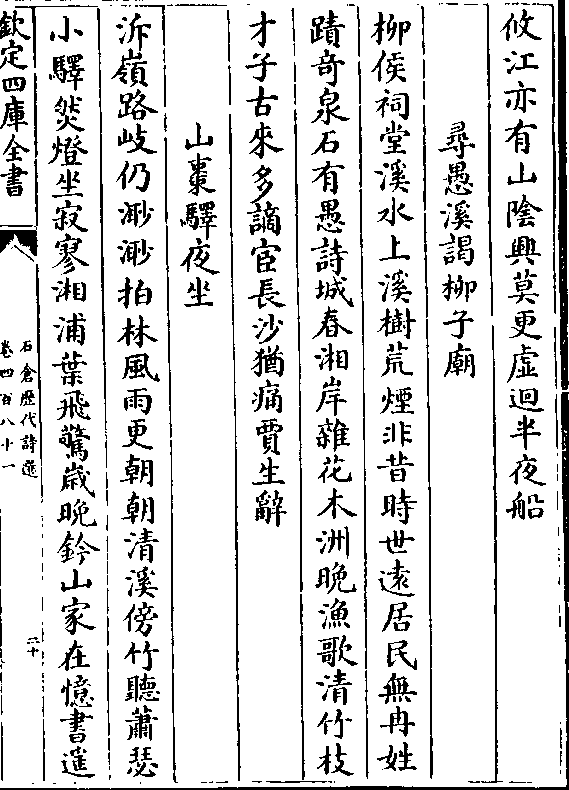 攸江亦有山陰興莫更虛迴半夜船
尋愚溪謁柳子廟
柳侯祠堂溪水上溪樹荒煙非昔時世遠居民無冉姓
蹟奇泉石有愚詩城春湘岸雜花木洲晚漁歌清竹枝
才子古來多謫宦長沙猶痛賈生辭
山棗驛夜坐
泝嶺路岐仍渺渺拍林風雨更朝朝清溪傍竹聽蕭瑟
小驛焚燈坐寂寥湘浦葉飛驚歲晩鈐山家在憶書遥
欽定四庫全書
石倉歴代詩選
卷四百八十一
二十